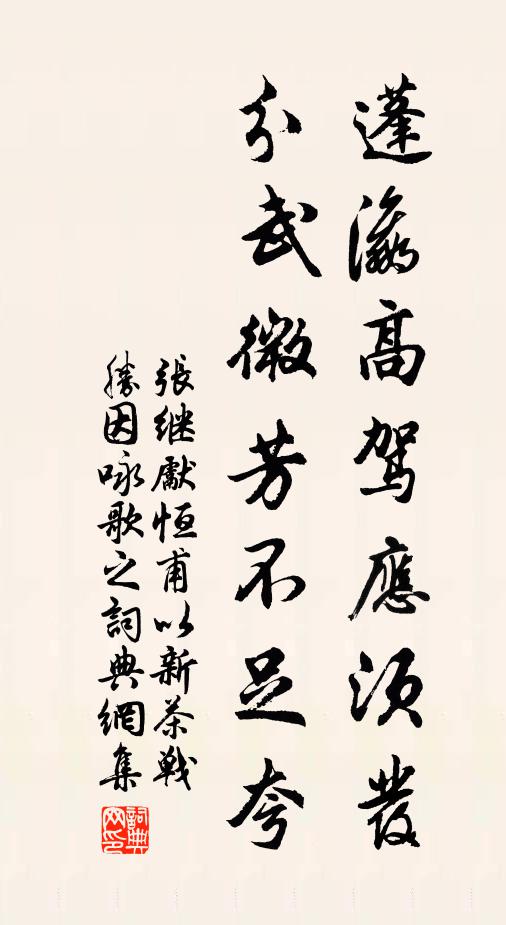 蓬瀛高駕應須發
分武微芳不足夸
張继獻恒甫以新茶戦
勝因咏歌之詞典網集
詞典
网印